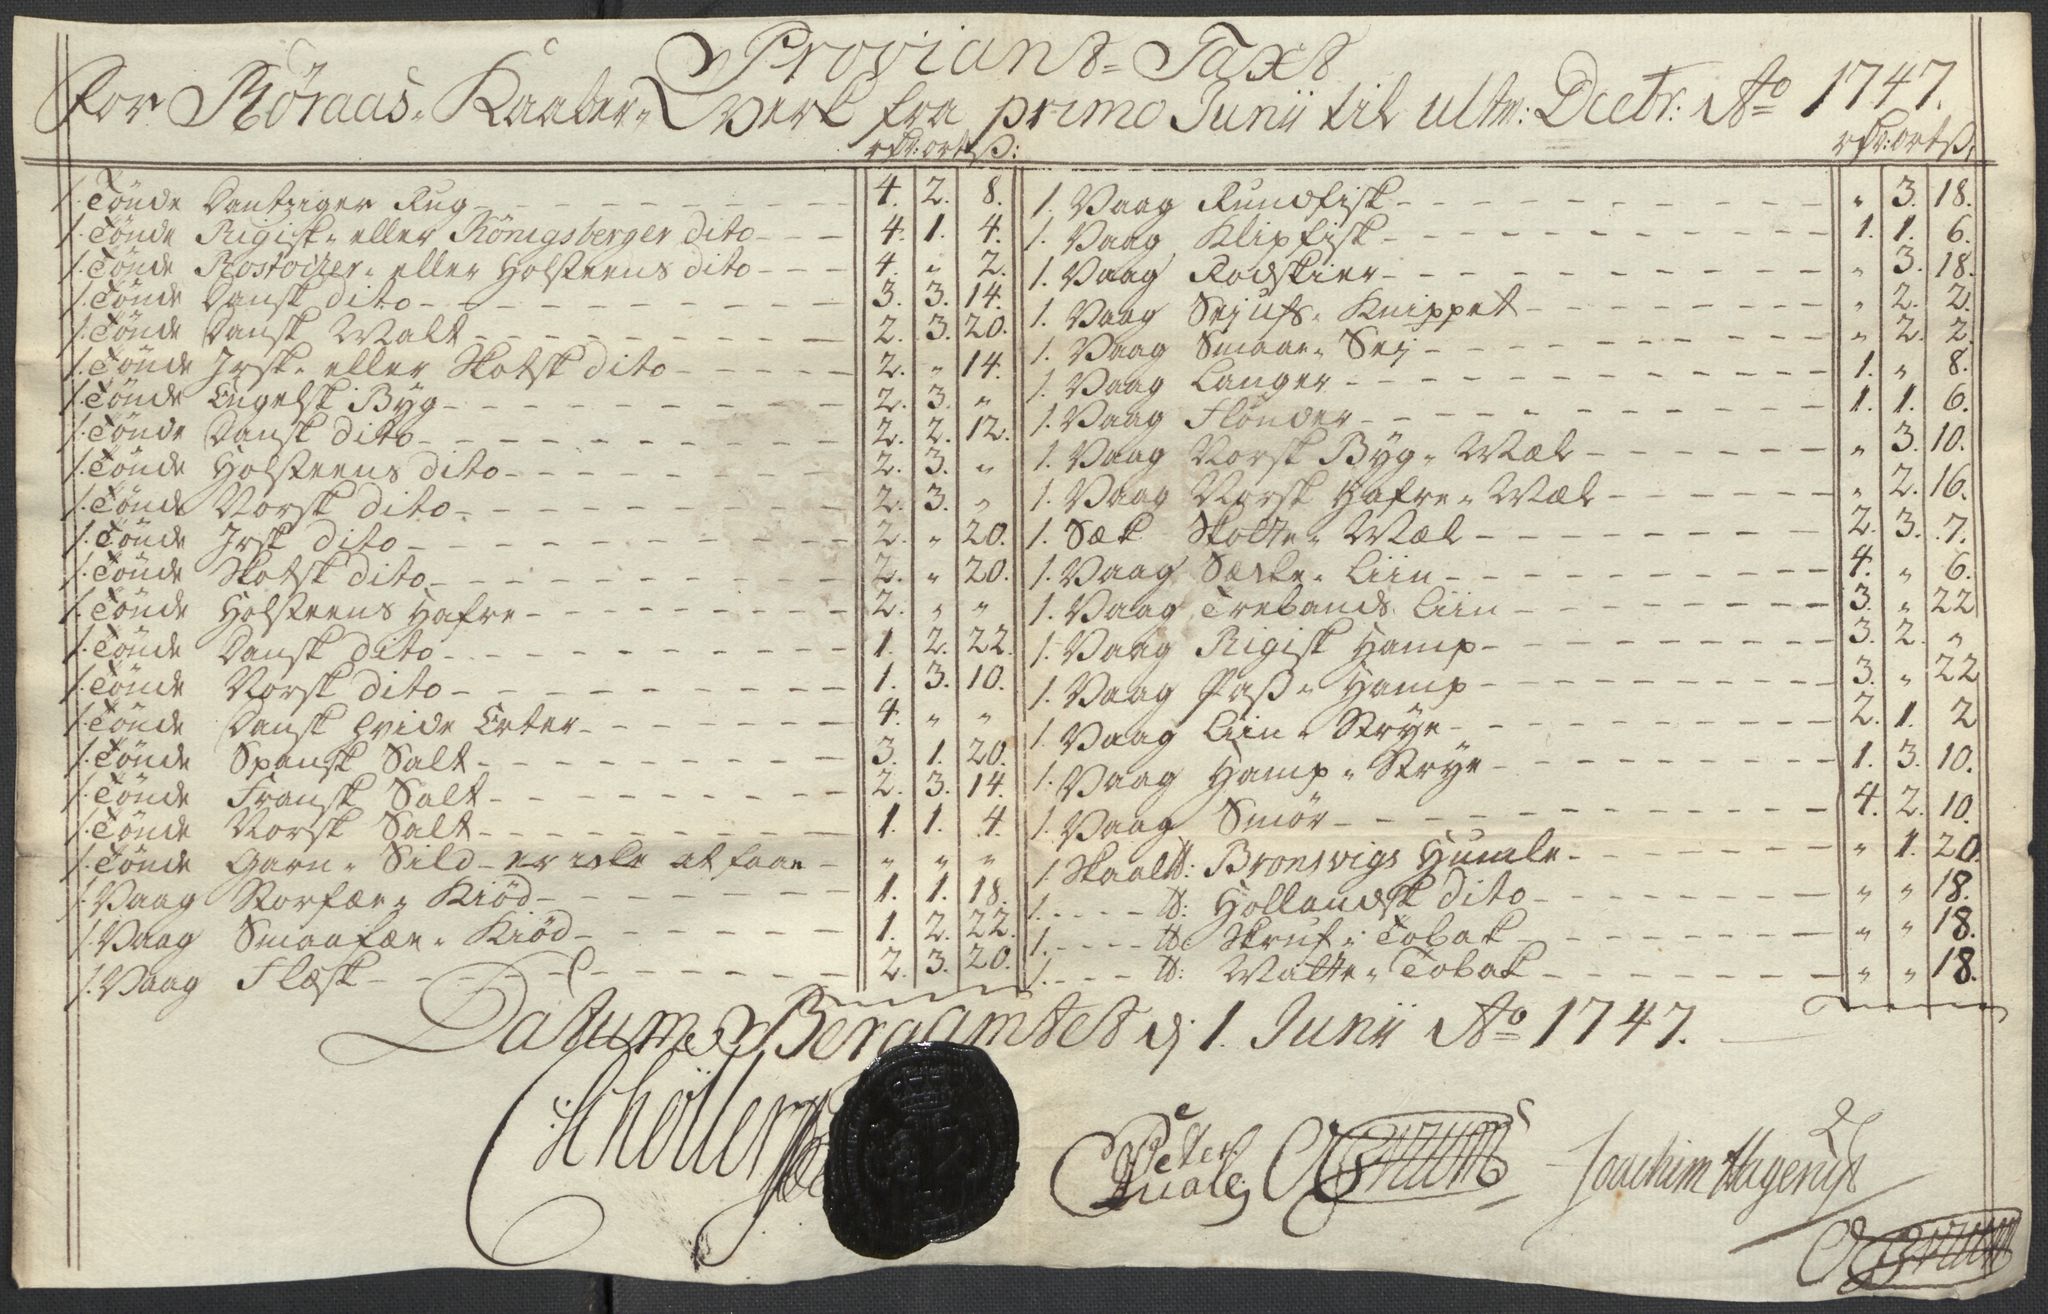 Proviant=Taxt
For Röraas= Kaaber= Werk fra primo Junii til ultm: Dectr: Ao 1747.
rdr: ort ß:
1. Tönde Dantziger Rug 4. 2. 8.
1. Tönde Rigisk= eller Königsberger dito 4. 1. 4.
1. Tönde Rostoker= eller Holsteens dito 4. " 2.
1. Tönde Dansk dito 3. 3. 14.
1. Tönde Dansk Malt 2. 3. 20.
1. Tönde Irsk= eller Skotsk dito 2. " 14.
1. Tönde Engelsk Byg 2. 3. "
1. Tönde Dansk dito 2. 2. 12.
1. Tönde Holsteens dito 2. 3. "
1. Tönde Norsk dito 2. 3. "
1. Tönde Irsk dito 2. " 20.
1. Tönde Skotsk dito 2. " 20.
1. Tönde Holsteens Hafre 2. " "
1. Tönde Dansk dito 1. 2. 22.
1. Tönde Norsk dito 1. 3. 10.
1. Tönde Dansk hvide Erter 4. " "
1. Tönde Spansk Salt 3. 1. 20.
1. Tönde Fransk Salt 2. 3. 14.
1. Tönde Norsk Salt 1. 1. 4.
1. Tönde Garn= Sild er icke at faae " " "
1. Vaag Storfæe= Kiöd 1. 1. 18.
1. Vaag Smaafæe= Kiöd 1. 2. 22.
1. Vaag Flæsk 2. 3. 20.
rdr: ort ß:
1. Vaag Rundfisk " 3. 18.
1. Vaag Klipfisk 1. 1. 6.
1. Vaag Rodskier " 3. 18.
1. Vaag Sejufs= Knippet " 2. 2.
1. Vaag Smaae= Sej " 2. 2.
1. Vaag Langer 1. " 8.
1. Vaag Flönder 1. 1. 6.
1. Vaag Norsk Byg= Mæl " 3. 10.
1. Vaag Norsk Hafre= Mæl " 2. 16.
1. Sæk Skotte= Mæl 2. 3. 7.
1. Vaag Sække= Liin 4. " 6.
1. Vaag Trebands Liin 3. " 22
1. Vaag Rigisk Hamp 3. 2. "
1. Vaag Paß= Hamp 3. " 22
1. Vaag Liin= Strye 2. 1. 2
1. Vaag Hamp= Strye 1. 3. 10.
1. Vaag Smör 4. 2. 10.
1 Skaal℔: Bronsvigs Humle " 1. 20.
1. ℔: Hollandsk dito " " 18.
1. ℔: Skruf= Tobak " " 18.
1. ℔: Matte= Tobak " " 18.
Datum Bergamtet d: 1. Junii Ao 1747.
Schöller
Peter
Quale
Joachim Hagerup